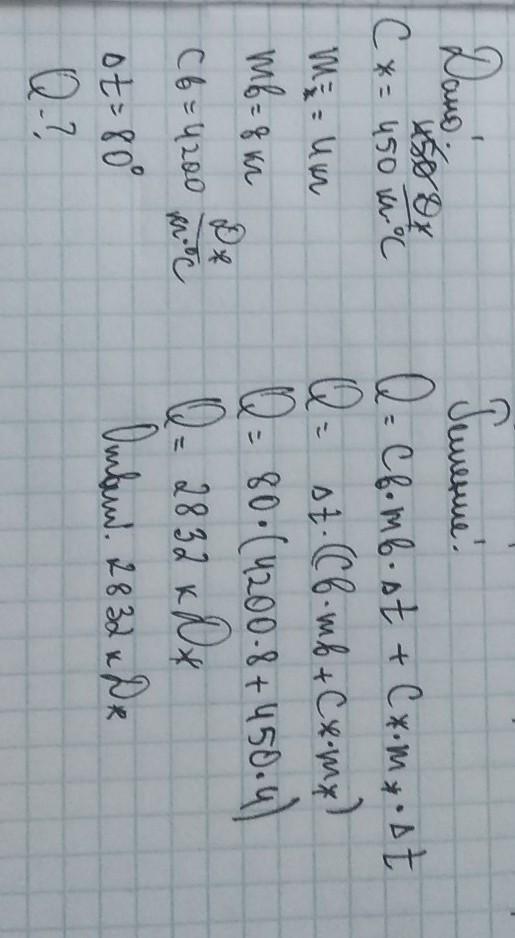 Дано:
Cж = 450 Дж/кг·°C
mж = 4кг
mв = 8кг
Cв = 4200 Дж/кг·°C
Δt = 80°
Q - ?
Решение:
Q = Cв·mв·Δt + Cж·mж·Δt
Q = Δt·(Cв·mв + Cж·mж)
Q = 80·(4200·8 + 450·4)
Q = 2832 кДж
Ответ: 2832 кДж